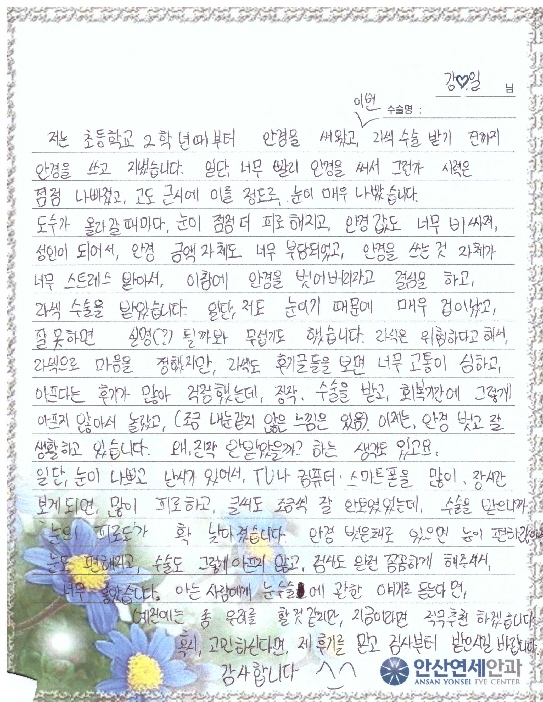 강♥일 님
이번 수술명 :
저는 초등학교 2학년때부터 안경을 써왔고, 라섹 수술 받기 전까지
안경을 쓰고 지냈습니다. 일단, 너무 빨리 안경을 써서 그런가 시력은
점점 나빠졌고, 고도 근시에 이를 정도로, 눈이 매우 나빴습니다.
도수가 올라갈 때마다, 눈이 점점 더 피로해지고, 안경값도 너무 비싸져,
성인이 되어서, 안경 금액 자체도 너무 부담되었고, 안경을 쓰는 것 자체가
너무 스트레스 받아서, 이참에 안경을 벗어버리라고 결심을 하고,
라섹 수술을 받았습니다. 일단, 저도 눈이기 때문에 매우 겁이났고,
잘못하면 실명(?) 될까봐 무섭기도 했습니다. 라식은 위험하다고 해서,
라섹으로 마음을 정했지만, 라섹도 후기글들을 보면 너무 고통이 심하고,
아프다는 후기가 많아 걱정했는데, 정작, 수술을 받고, 회복기간에 그렇게
아프지 않아서 놀랐고, (조금 내눈같지 않은 느낌은 있음) 이제는, 안경 벗고 잘
생활하고 있습니다. 왜, 진작 안받았을까? 하는 생각도 있고요.
일단, 눈이 나쁘고 난시가 있어서, TV나 컴퓨터·스마트폰을 많이, 장시간
보게되면, 많이 피로하고, 글씨도 조금씩 잘 안보였었는데, 수술을 받으니까
눈의 피로도가 확 낮아졌습니다. 안경 벗은채로 있으면 눈이
눈도 편해지고, 수술도 그렇게 아프지 않고, 검사도 완전 꼼꼼하게 해주셔서,
너무 좋았습니다. 아는 사람에게 눈수술에 관한 얘기를 듣는다면,
예전에는 좀 우려를 할것 같지만, 지금이라면 적극추천 하겠습니다.
혹시, 고민하신다면, 제 후기를 믿고 검사부터 받으시길 바랍니다.
감사합니다 ^^
안산연세안과
ANSAN YONSEI EYE CENTER